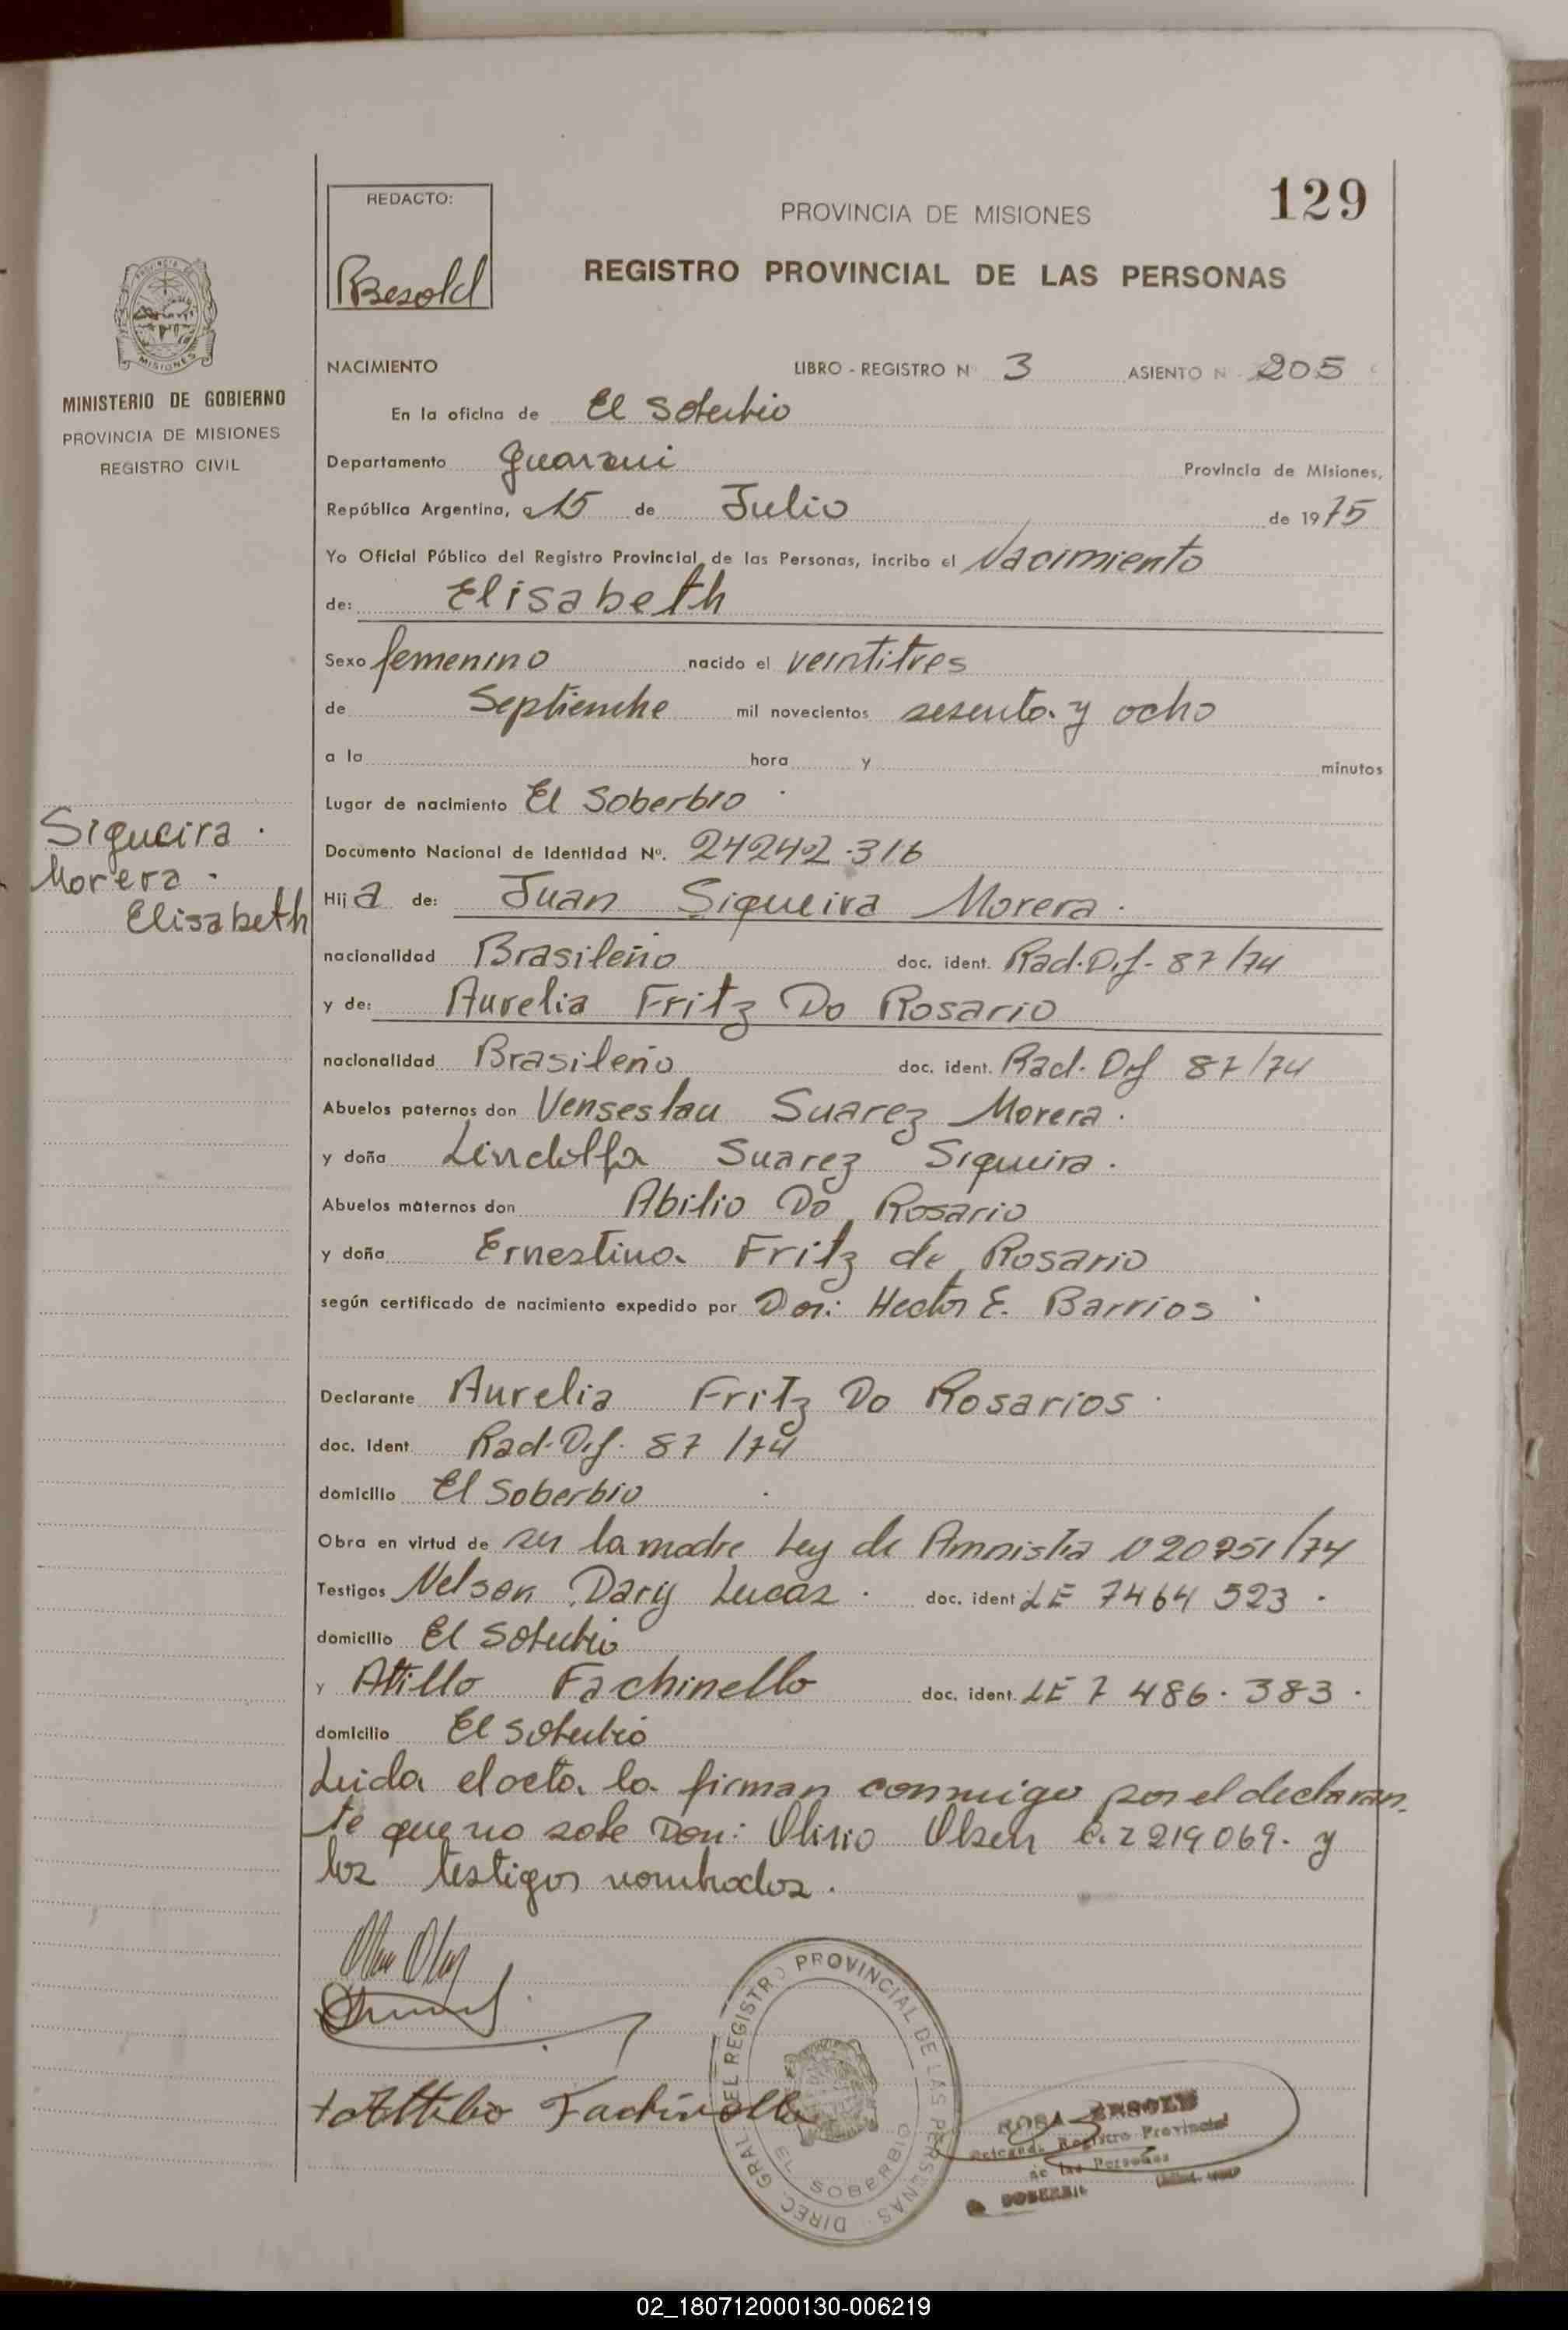 129
REDACTO:
Besold
PROVINCIA DE MISIONES
REGISTRO PROVINCIAL DE LAS PERSONAS
MISIONES
MINISTERIO DE GOBIERNO
PROVINCIA DE MISIONES
REGISTRO CIVIL
NACIMIENTO LIBRO - REGISTRO N 3 ASIENTO N 205
En la oficina de El Soberbio
Departamento Guarani Provincia de Misiones,
República Argentina, a 15 de Julio de 1975
Yo Oficial Público del Registro Provincial de las Personas, incribo el Nacimiento
de: Elisabeth
Sexo femenino nacido el veintitres
de Septiembre mil novecientos sesenta y ocho
a la hora y minutos
Lugar de nacimiento El Soberbio
Siqueira
Morera
Elisabeth
Documento Nacional de Identidad Nº. 24242.316
Hija de: Juan Siqueira Morera.
nacionalidad Brasileño doc. ident. Rad. Dif. 87/74
y de: Aurelia Fritz Do Rosario
nacionalidad Brasileño doc. ident. Rad. Dif 87/74
Abuelos paternos don Venseslau Suarez Morera.
y doña Lindolfa Suarez Siqueira.
Abuelos maternos don Abilio Do Rosario
y doña Ernestina Fritz de Rosario
según certificado de nacimiento expedido por Don: Hector E. Barrios
Declarante Aurelia Fritz Do Rosarios.
doc. Ident Rad. Dif. 87/74
domicilio El Soberbio
Obra en virtud de ser la madre Ley de Amnistia N 20951/74
Testigos Nelson Dary Lucas. doc. ident LE 7464 523.
domicilio El Soberbio
y Atillo Fachinello doc. ident. LE 7 486.383.
domicilio El Soberbio
Leida el acta la firman conmigo por el declaran-
te que no sabe Don: Olirio Olsen C.I 219069. y
los testigos nombrados.
Attilio Fachinello
DIREC. GRAL DEL REGISTRO PROVINCIAL DE LAS PERSONAS
EL SOBERBIO
ROSA BESOLD
Delegada Registro Provincial
de las Personas
SOBERBIO
02_180712000130-006219